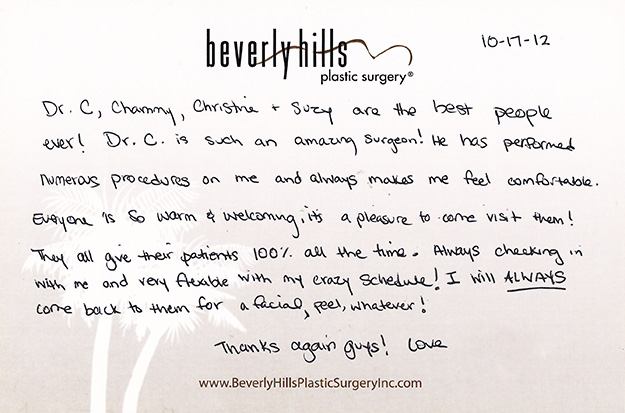 beverlyhills
plastic surgery®
10-17-12
Dr. C, Chammy, Christie + Suzy are the best people
ever! Dr. C. is such an amazing surgeon! He has performed
numerous procedures on me and always makes me feel comfortable.
Everyone is so warm & welcoming, it's a pleasure to come visit them!
They all give their patients 100% all the time. Always checking in
with me and very flexible with my crazy schedule! I will ALWAYS
come back to them for a facial, peel, whatever!
Thanks again guys! Love
www.BeverlyHillsPlasticSurgeryInc.com